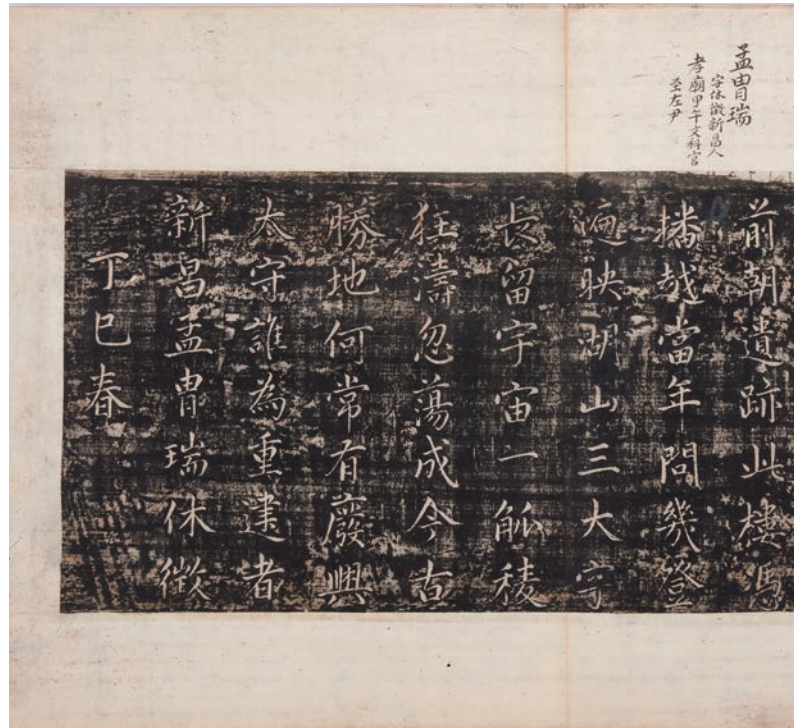 孟胄瑞
字休徵新昌人
孝廟甲午文科官
至左尹
前朝遺跡此樓憑
播越當年問幾登
遍映湖山三大字
長留宇宙一觚稜
狂濤忽蕩成今古
勝地何常有廢興
太守誰為重建者
新昌孟胄瑞休徵
丁巳春